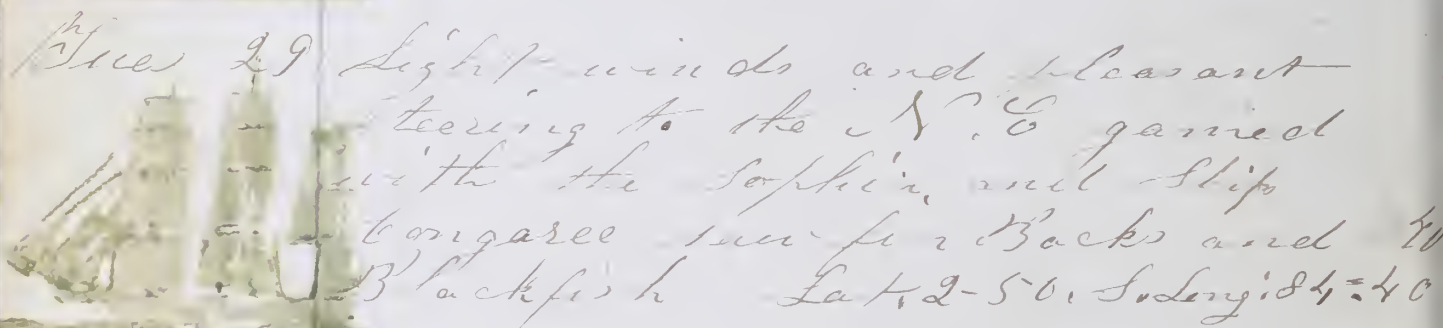 Tues 29 Light winds and pleasant
Steering to the N.E gamed
with the Sophia, and Ship
Congaree saw fin Backs and
Blackfish Lat. 2-50. S. Long: 84=40